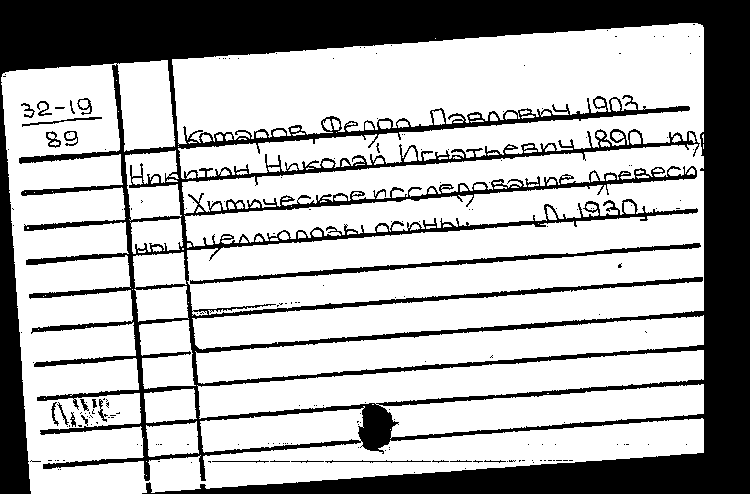 32-19
89
Комаров, Федор Павлович, 1903.
Никитин, Николай Игнатьевич, 1890 и др
Химическое исследование древеси-
ны и целлюлозы осины. [Л., 1930].